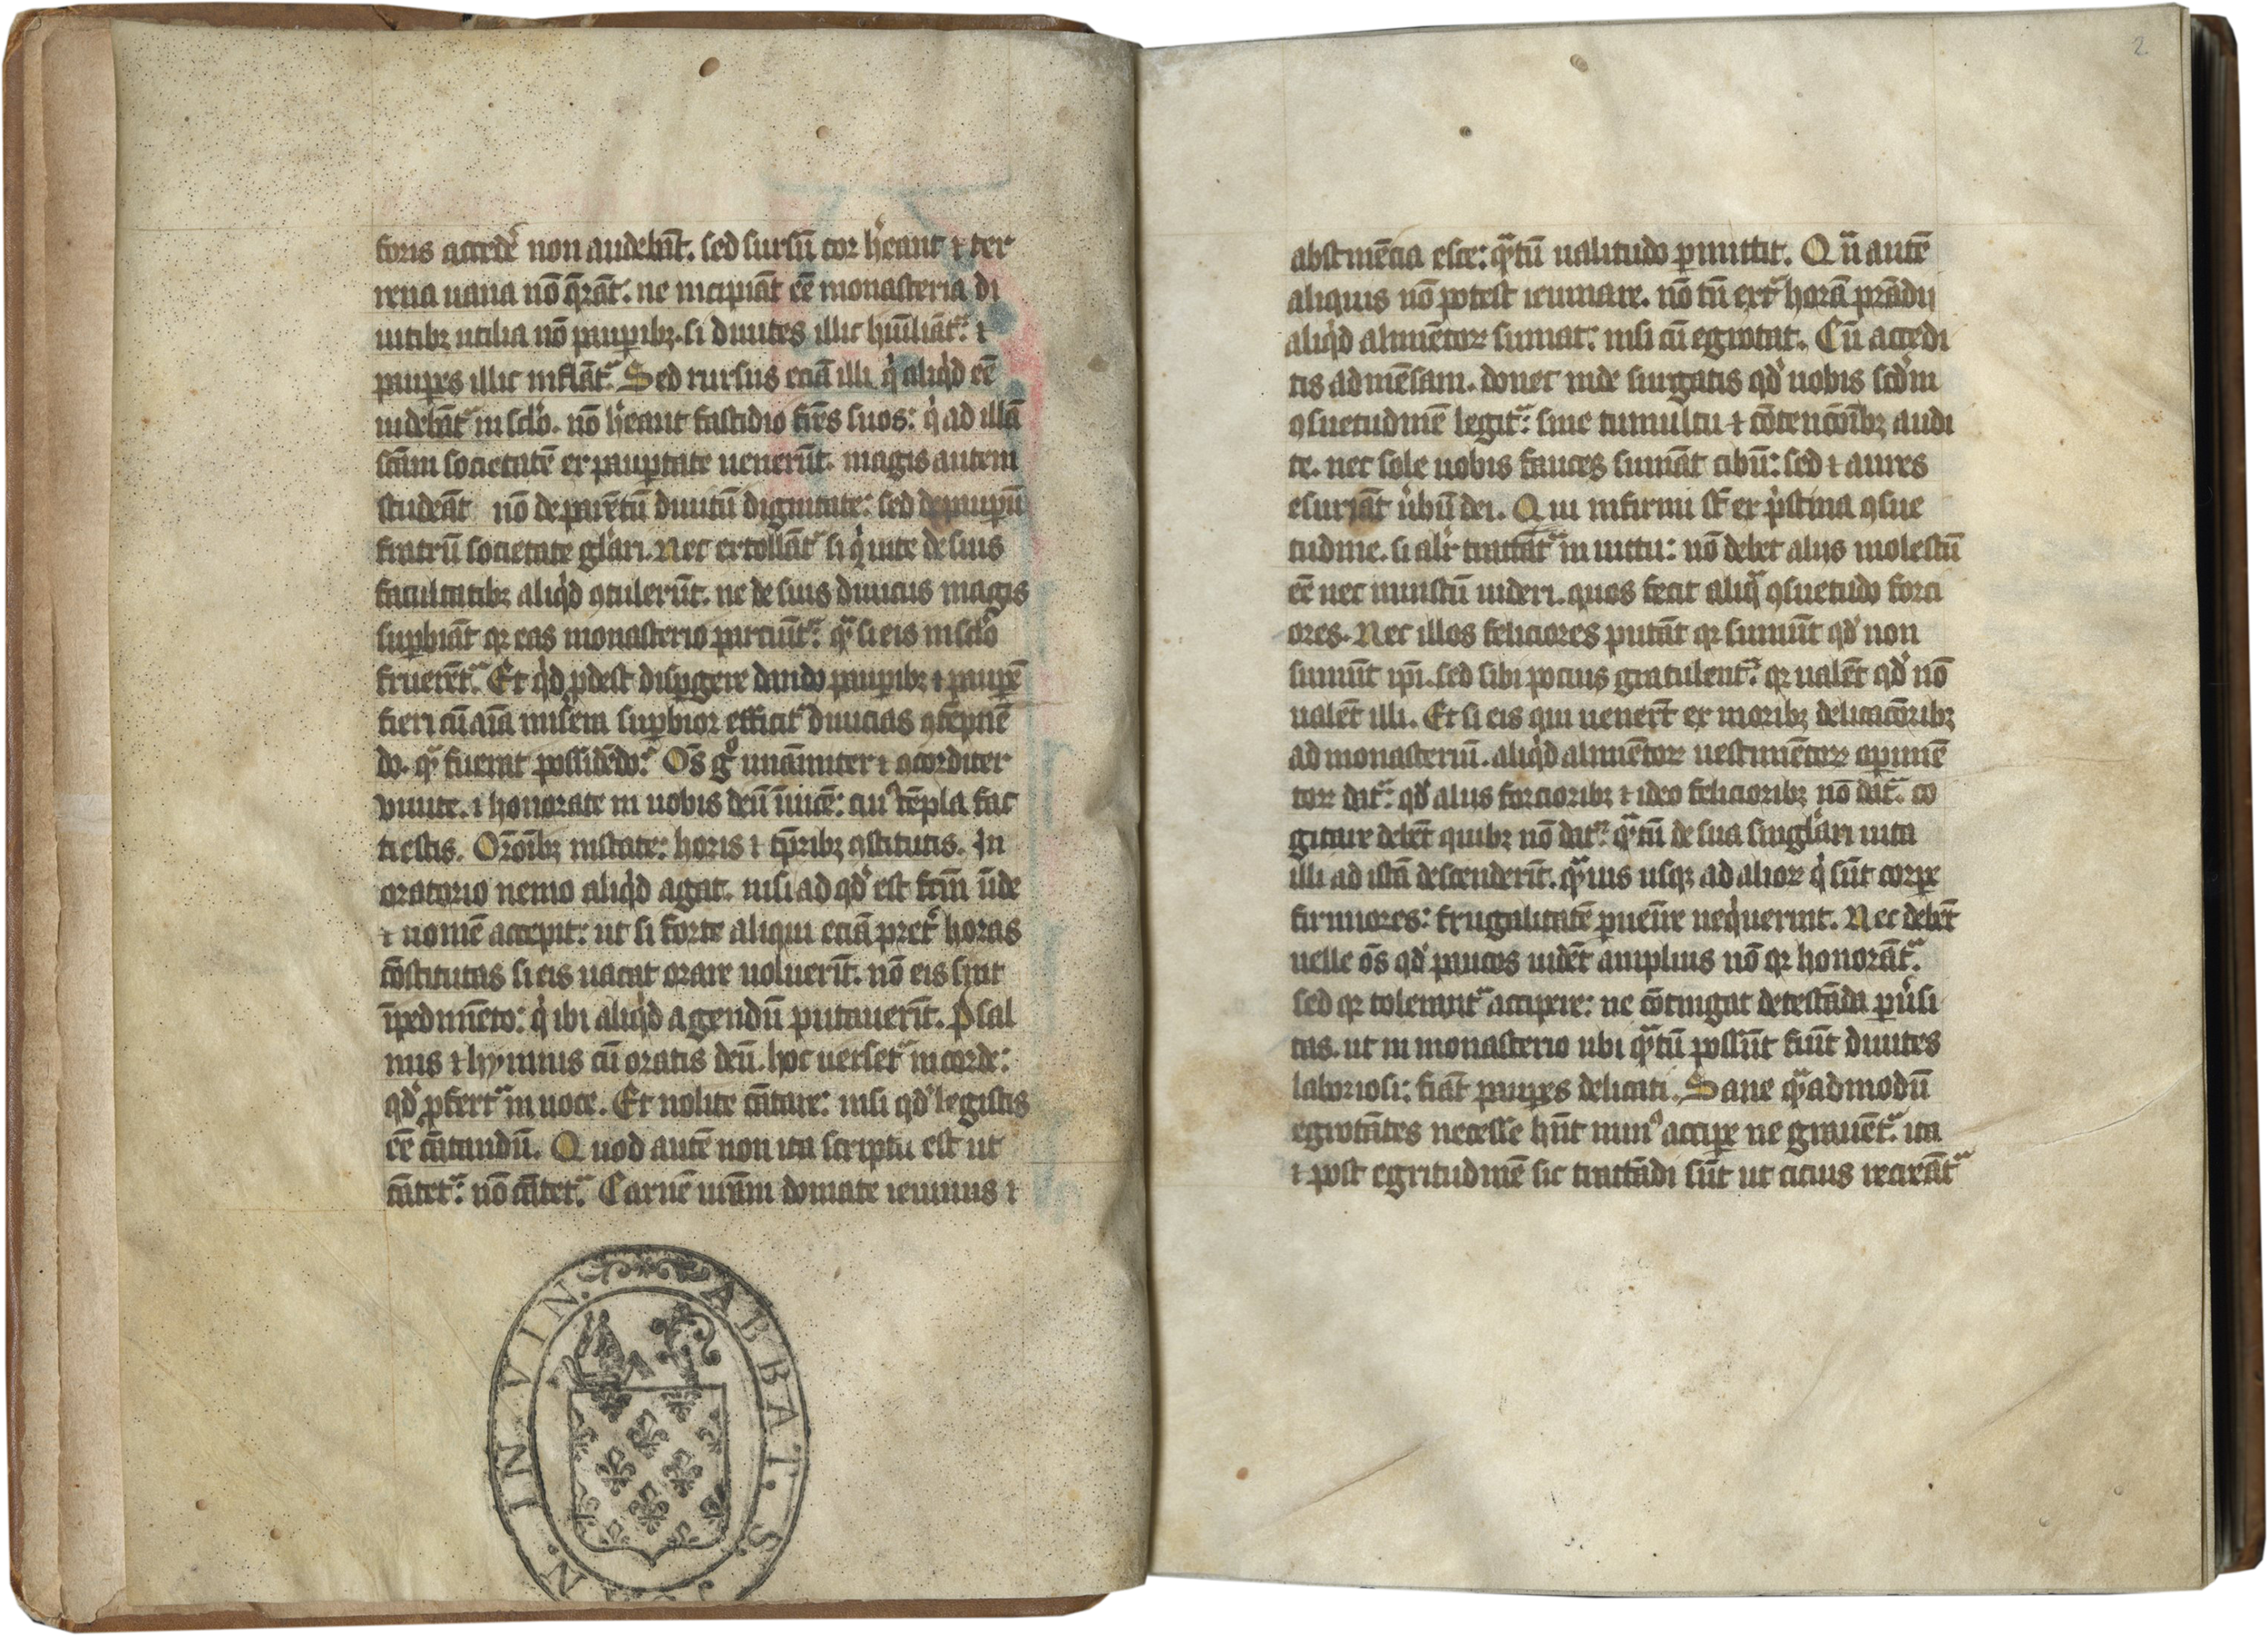 foris accedẽ non audebāt. sed sursū cor hẽant ⁊ ter
rena uana nō q̄rāt. ne incipiāt eē monasteria di
uitibꝫ utilia nō paup̲ibꝫ. si diuites illic hūiliātᷣ. ⁊
paup̲es illic inflātᷣ. Sed rursus eciā illi qͥ aliqͥd eē
uidebātᷣ in sclo. nō hẽant fastidio fr̄es suos: qͥ ad illā
scām societatē ex paup̲tate uenerūt. magis autem
studeāt nō de parētū diuitū dignitate: sed de paup̲ū
fratrū societate glari. Nec extollātᷣ si qͥ uite de suis
facultatibꝫ aliqͥd ꝯtulerūt. ne de suis diuiciis magis
sup̲biāt qꝛ eas monasterio parciūtᷣ. qᷓ si eis in sclo
fruerētᷣ. Et qͥd ꝓdest disp̲gere dando paup̲ibꝫ ⁊ paup̲ē
fieri cū aīa misera sup̲bior efficitᷣ diuicias ꝯtēpnē
do. qᷓ fuerat possidēdo. Oēs gͦ unāimiter ⁊ ꝯcorditer
viuite. ⁊ honorate in uobis deū īuicē: cuiꝰ tēpla fac
ti estis. Orōibꝫ instate: horis ⁊ tp̄ribꝫ ꝯstitutis. In
oratorio nemo aliqͥd agat. nisi ad qd̓ est fc̄m ūde
⁊ nomē accepit: ut si forte aliqui eciā pret̓ horas
cōstitutas si eis uacat orare uoluerīt. nō eis sint
īpedimēto: qͥ ibi aliqͥd agendū putauerīt. Psal
mis ⁊ hymnis cū oratis deū. hoc uersetᷣ in corde:
qd̓ ꝓfertᷣ in uoce. Et nolite cātare: nisi qd̓ legistis
eē cātandū. Quod autē non ita scriptū est ut
cātetᷣ: nō cātetᷣ. Carnē ur̄am domate ieiuniis ⁊
abstinēcia esce: qᷓtū ualitudo p̲mittit. Qn̄ autē
aliquis nō potest ieiunare. nō tn̄ extᷓ horā prādii
aliqͥd alimētoꝝ sumat: nisi cū egrotat. Cū accedi
tis ad mēsam. donec inde surgatis qd̓ uobis scd̓m
ꝯsuetudinē legitᷣ: sine tumultu ⁊ cōtencōibꝫ audi
te. nec sole uobis fauces sumāt cibū: sed ⁊ aures
esuriāt ūbū dei. Qui infirmi st̄ ex pͥstina ꝯsue
tudine. si alīr tractātᷣ in uictu: nō debet aliis molestū
eē nec iniustū uideri. quos fecit aliqᷓ ꝯsuetudo forci
ores. Nec illos feliciores putāt qꝛ sumūt qd̓ non
sumūt ip̄i. sed sibi pocius gratulentᷣ. qꝛ ualēt qd̓ nō
ualēt illi. Et si eis qui uenerūt ex moribꝫ delicacōribꝫ
ad monasteriū. aliqͥd alimētoꝝ uestimētoꝝ op̲imē
toꝝ datᷣ: qd̓ aliis forcioribꝫ ⁊ ideo felicioribꝫ nō datᷣ. co
gitare debēt quibꝫ nō datᷣ: qᷓtū de sua singlari uita
illi ad istā descenderīt. qᷓuis usqꝫ ad alioꝝ qͥ sūt corp̲e
firmiores: frugalitatē p̲uenīre neqͥuerint. Nec debēt
uelle oēs qd̓ paucos uidēt amplius nō qꝛ honorātᷣ.
sed qꝛ tolerantᷣ accipere: ne cōtingat detestāda p̲u̓si
tas. ut in monasterio ubi qᷓtū possūt fiūt diuites
laboriosi: fiāt paup̲es delicati. Sane qᷓadmodū
egrotātes necesse hn̄t minꝰ accip̲e ne grauētᷣ. ita
⁊ post egritudinē sic tractādi sūt ut cicius recreātᷣ
ABBAT. S.
IN VIN.
2